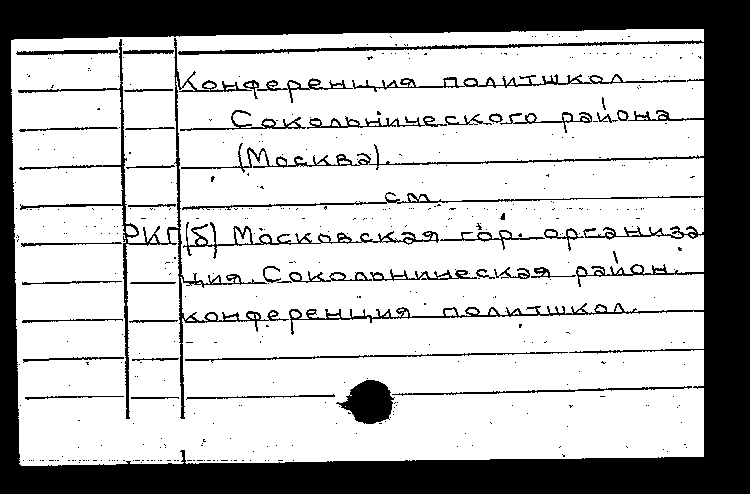 Конференция политшкол
Сокольнического района
(Москва).
см.
РКП(б) Московская гор. организа
ция. Сокольническая район.
конференция политшкол.